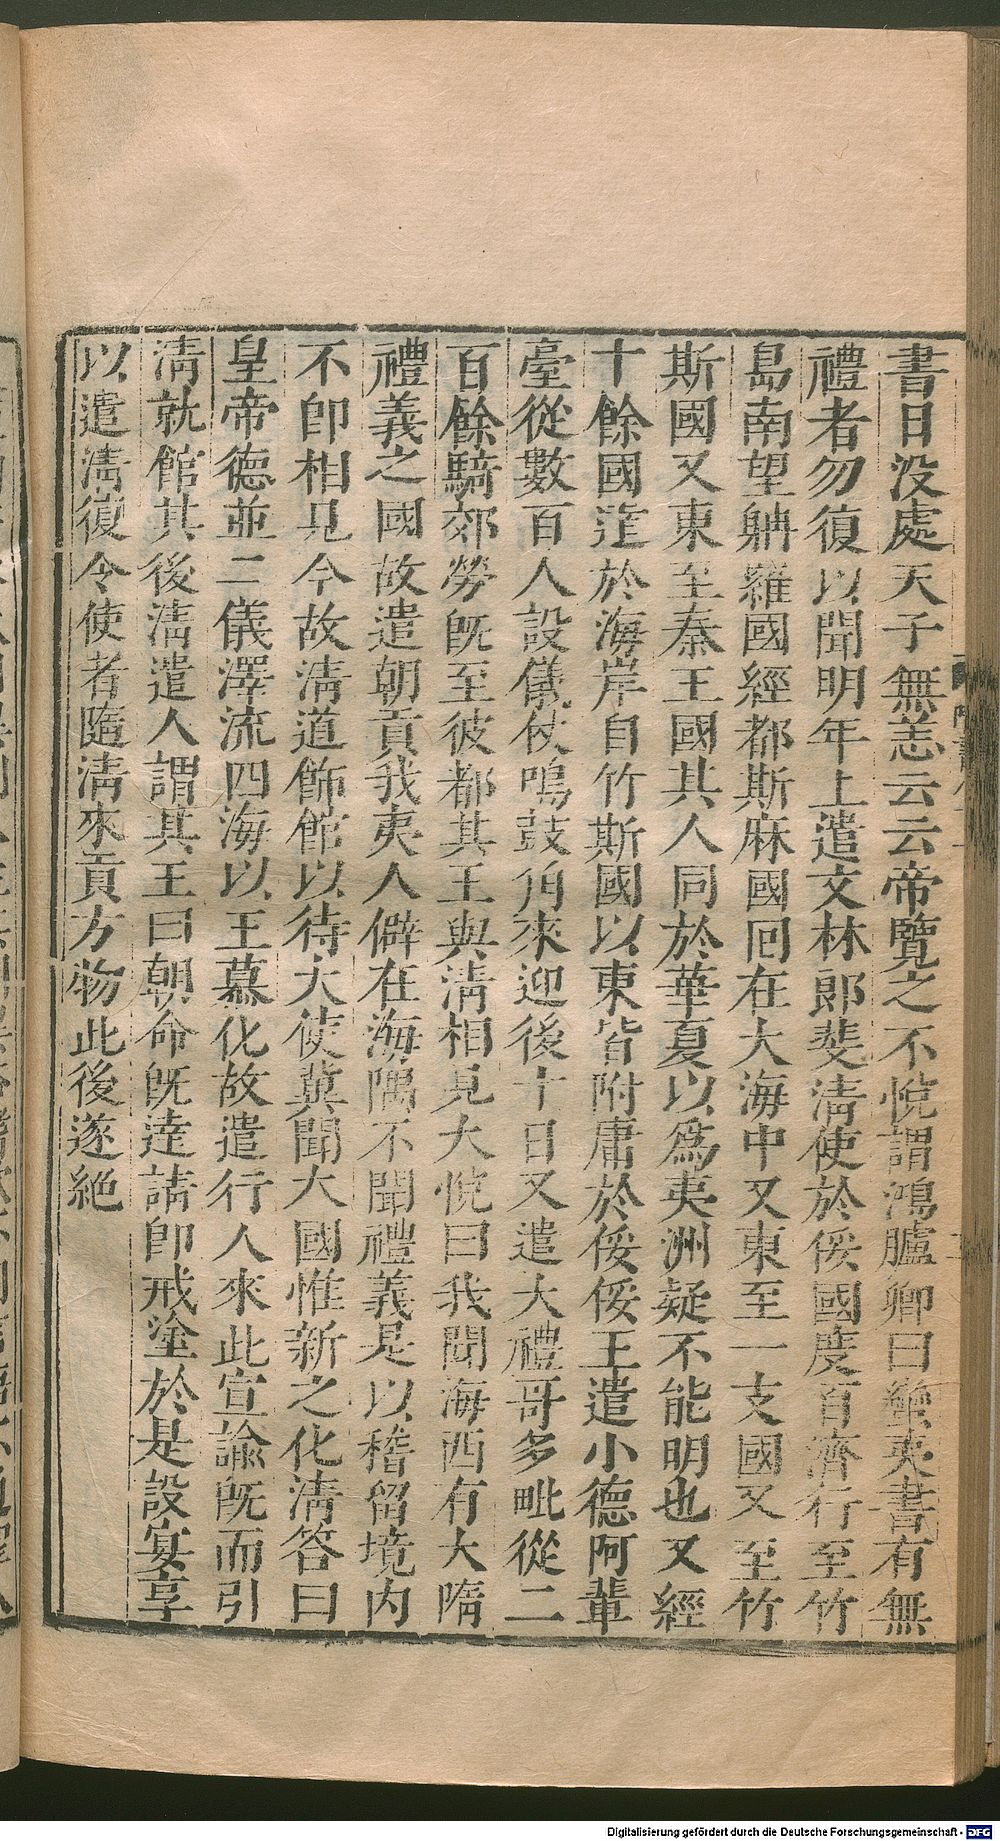 書日没處天子無恙云云帝覽之不悅謂鴻臚卿曰蠻夷書有無
禮者勿復以聞明年上遣文林郎斐淸使於俀國度百濟行至竹
島南望𨈭羅國經都斯麻國迥在大海中又東至一支國又至竹
斯國又東至秦王國其人同於華夏以爲夷洲疑不能明也又經
十餘國逹於海岸自竹斯國以東皆附庸於俀俀王遣小德阿輩
臺從數百人設儀仗鳴鼓角來迎後十日又遣大禮哥多毗從二
百餘騎郊勞旣至彼都其王與淸相見大悅曰我聞海西有大隋
禮義之國故遣朝貢我夷人僻在海隅不聞禮義是以稽留境内
不卽相見今故淸道飾館以待大使冀聞大國惟新之化淸答曰
皇帝德並二儀澤流四海以王慕化故遣行人來此宣諭旣而引
淸就館其後淸遣人謂其王曰朝命旣逹請卽戒塗於是設宴享
以遣淸復令使者隨淸來貢方物此後遂絕
Digitalisierung gefördert durch die Deutsche Forschungsgemeinschaft - DFG